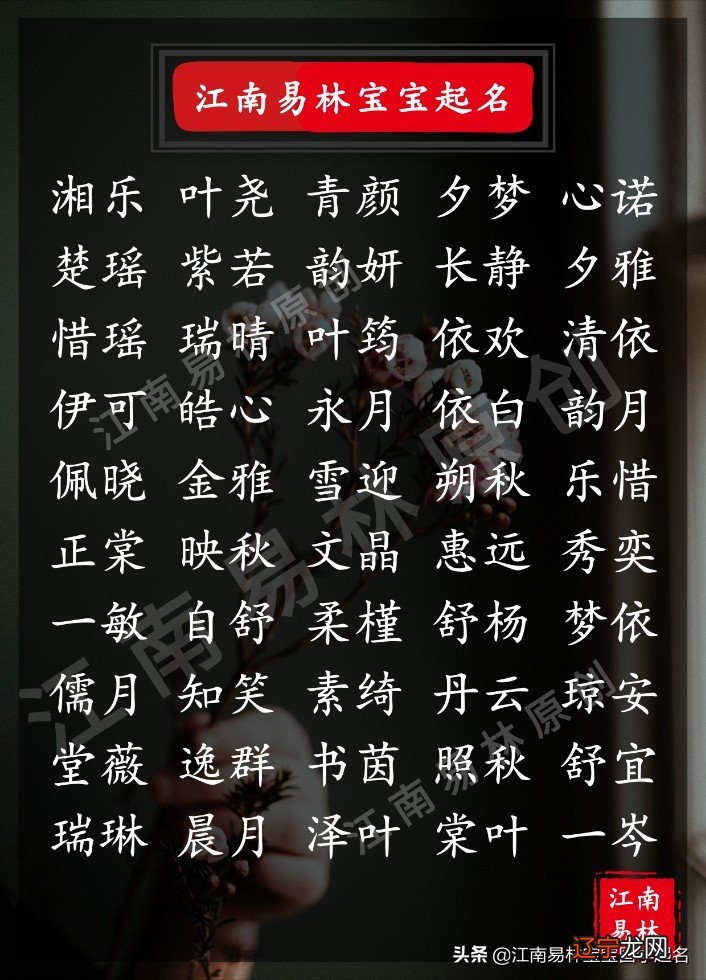 江南易林宝宝起名
湘乐 叶尧 青颜 夕梦 心诺
楚瑶 紫若 韵妍 长静 夕雅
惜瑶 瑞晴 叶筠 依欢 清依
伊可 皓心 永月 依白 韵月
佩晓 金雅 雪迎 朔秋 乐惜
正棠 映秋 文晶 惠远 秀奕
一敏 自舒 柔槿 舒杨 梦依
儒月 知笑 素绮 丹云 琼安
堂薇 逸群 书茵 照秋 舒宜
瑞琳 晨月 泽叶 棠叶 一岑
江南易林原创
江南易林原创
江南易林原创
江南
易林
辽宁龙网
头条 @江南易林宝宝起名